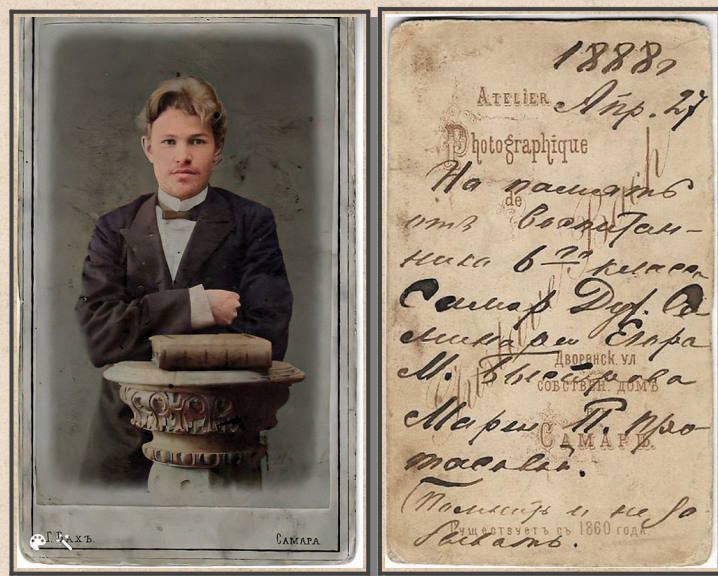 Г. Бахъ.
Самара
1888г
Апр. 27
Atelier
Photographique
de
На память
отъ воспитан-
ника 6го класса
Самар. Дух. Се
минаріи
М. Быстрова
Маріи П. Про
тасовой.
Помнить и не за-
бывать.
Дворянск. ул.
собствен. домъ
Самара.
Существуетъ съ 1860 года.